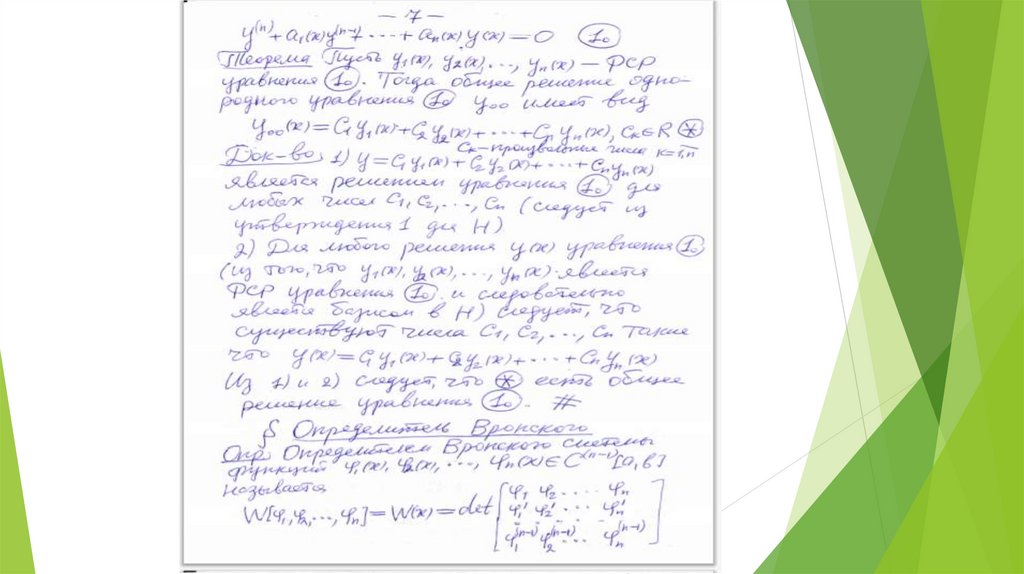 — 7 —
y⁽ⁿ⁾ + a₁(x)y⁽ⁿ⁻¹⁾ + ... + aₙ(x) y(x) = 0 (1₀)
Теорема Пусть y₁(x), y₂(x), ..., yₙ(x) — ФСР
уравнения (1₀). Тогда общее решение одно-
родного уравнения (1₀) y₀₀ имеет вид
y₀₀(x) = C₁y₁(x) + C₂y₂(x) + ... + Cₙyₙ(x), Cₖ ∈ R (*)
Cₖ — произвольные числа k=1,n
Док-во, 1) y = C₁y₁(x) + C₂y₂(x) + ... + Cₙyₙ(x)
является решением уравнения (1₀) для
любых чисел C₁, C₂, ..., Cₙ (следует из
утверждения 1 для H)
2) Для любого решения y(x) уравнения (1₀)
(из того, что y₁(x), y₂(x), ..., yₙ(x) является
ФСР уравнения (1₀) и следовательно
является базисом в H) следует, что
существуют числа C₁, C₂, ..., Cₙ такие
что y(x) = C₁y₁(x) + C₂y₂(x) + ... + Cₙyₙ(x)
Из 1) и 2) следует, что (*) есть общее
решение уравнения (1₀). #
§ Определитель Вронского
Опр. Определителем Вронского системы
функций φ₁(x), φ₂(x), ..., φₙ(x) ∈ C⁽ⁿ⁻¹⁾[a,b]
называется
W[φ₁, φ₂, ..., φₙ] = W(x) = det [φ₁ φ₂ .... φₙ
φ₁' φ₂' ... φₙ'
.. .. .. ..
φ₁⁽ⁿ⁻¹⁾ φ₂⁽ⁿ⁻¹⁾ ... φₙ⁽ⁿ⁻¹⁾]